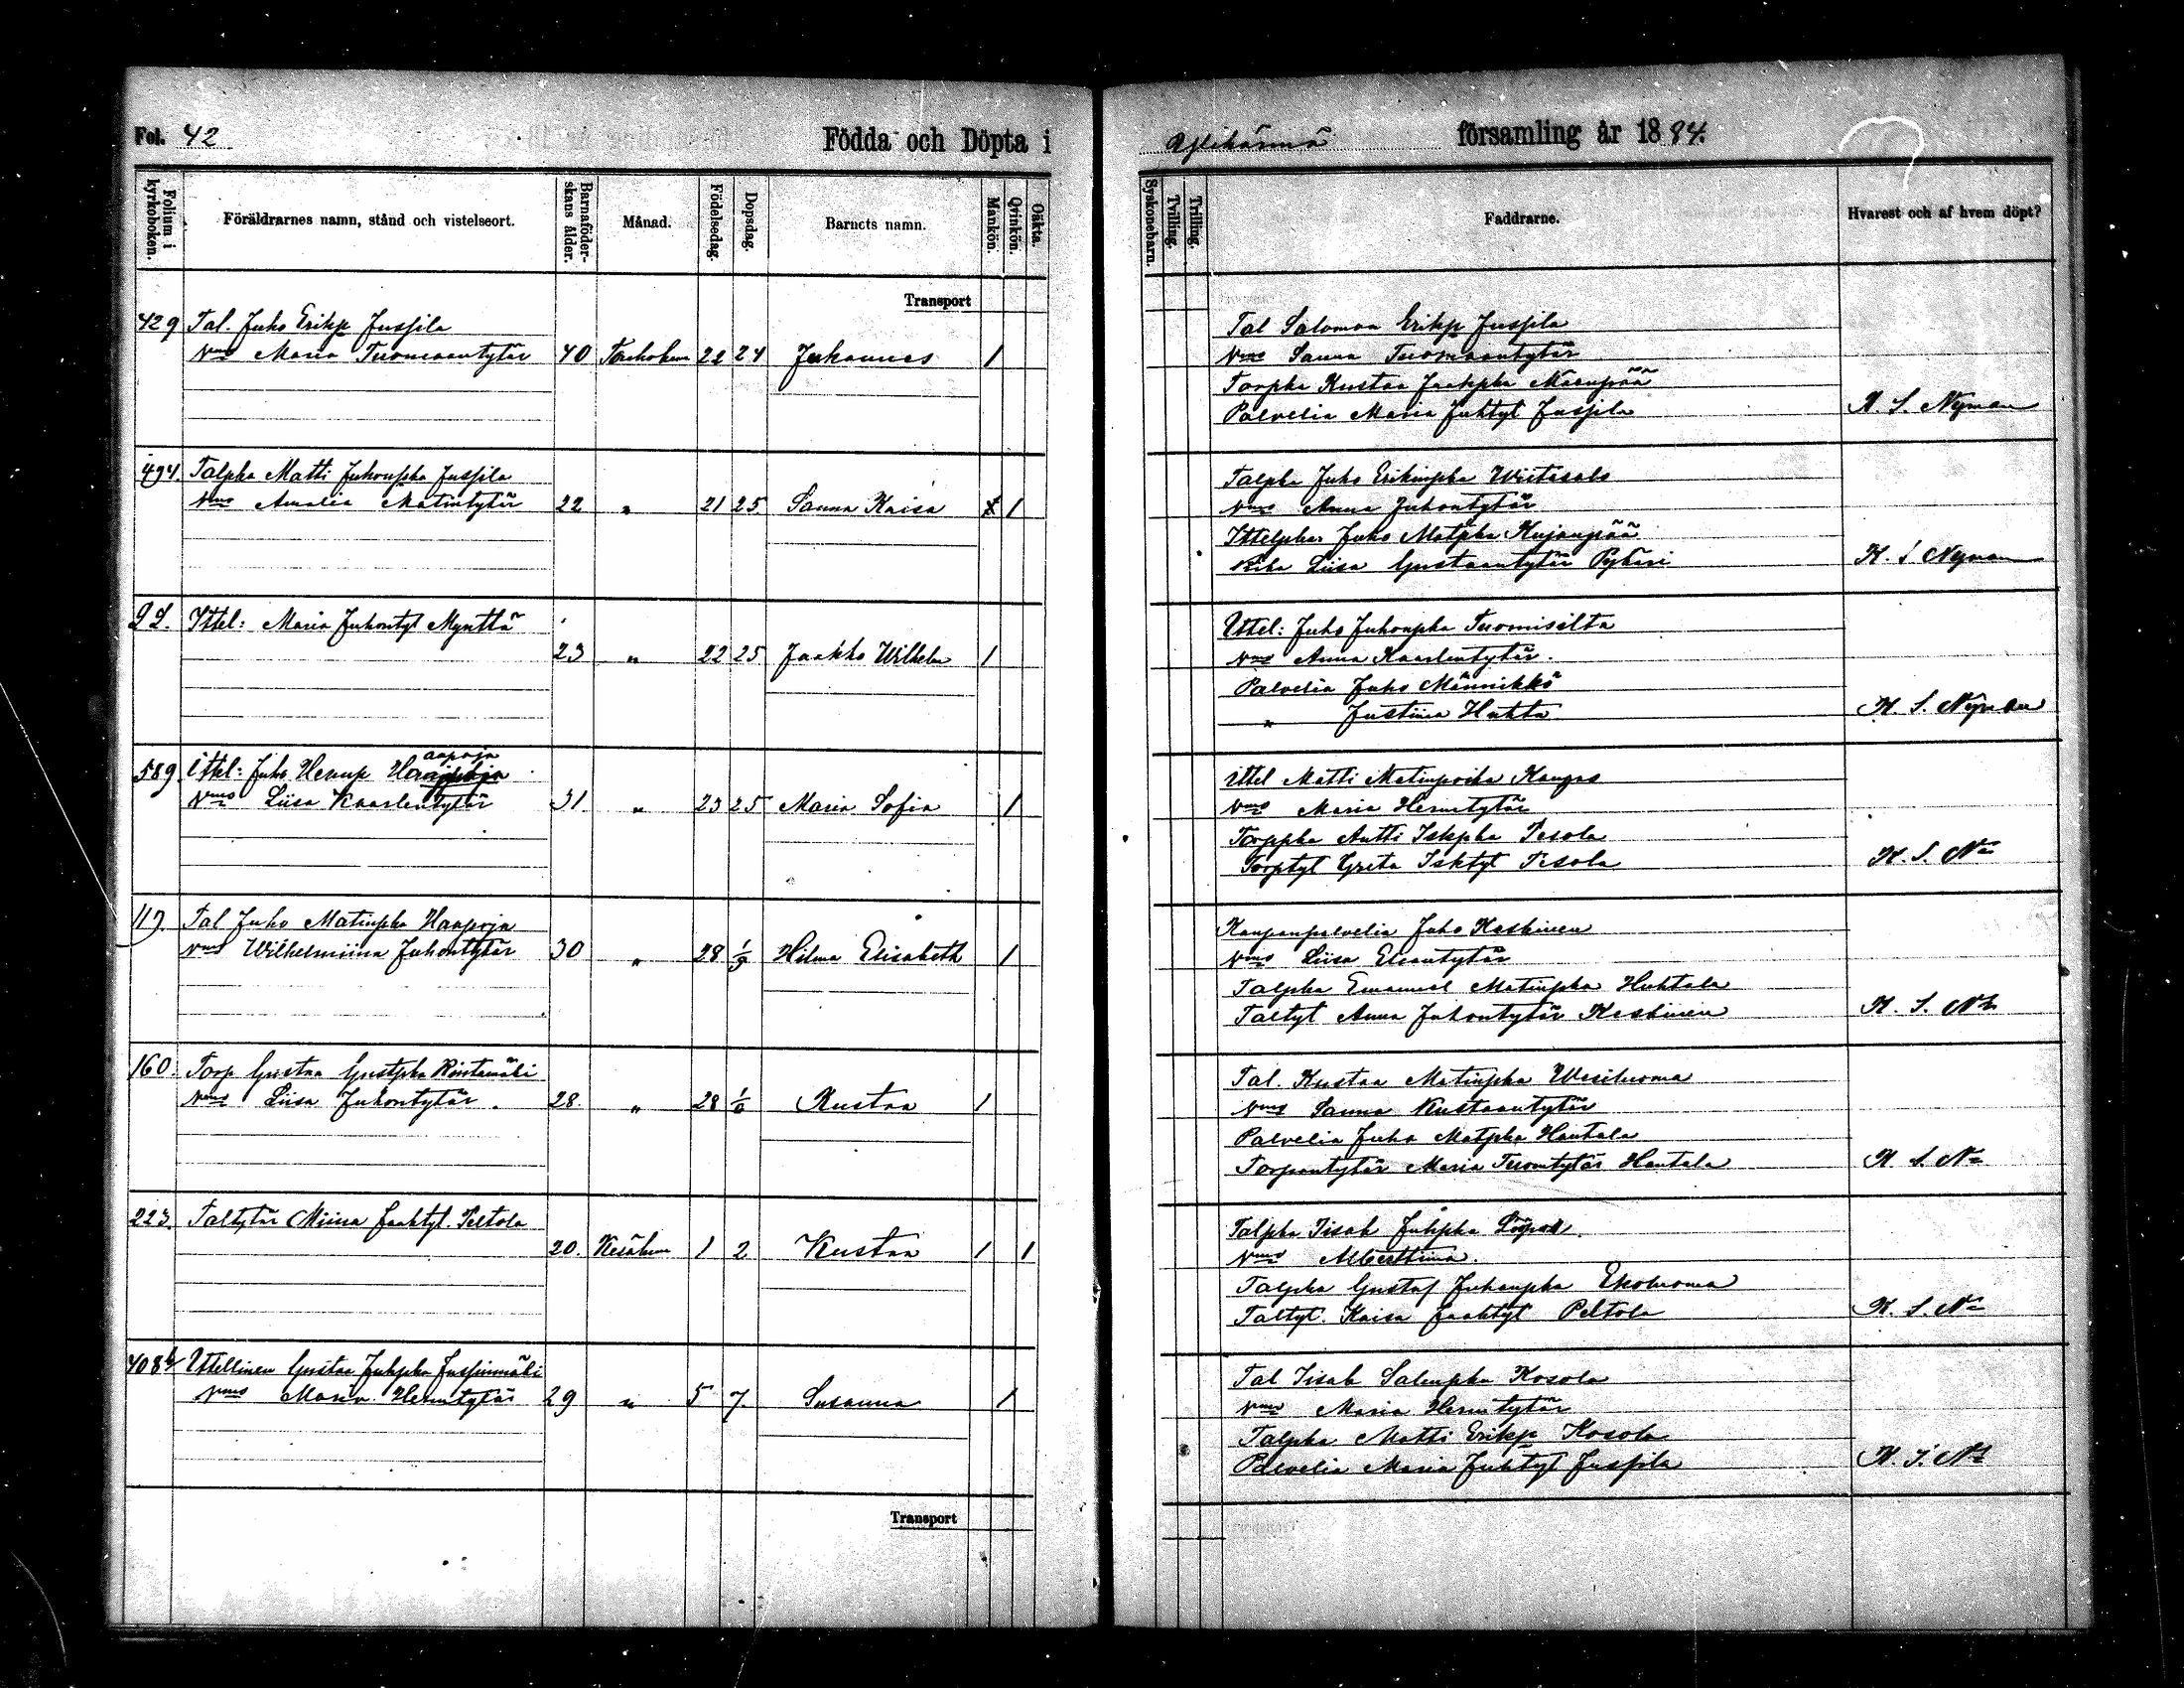 Fol. 42
Födda och Döpta i
Folium i kyrkoboken.
Föräldrarnes namn, stånd och vistelseort.
Barnaföderskans ålder.
Månad.
Födelsedag.
Dopsdag.
Barnets namn.
Mankön.
Qvinkön.
Oäkta.
Transport
429 Tal. Juho Erikp Jussila
Vmo Maria Tuomaantytär 40 Toukokuu 22 24 Juhannes 1
494. Talpka Matti Juhonpka Jussila
Vmo Amalia Matintytär 22 " 21 25 Sanna Kaisa 1
92. Ittel: Maria Juhontyt Mynttä
23 " 22 25 Jaakko Wilhelm 1
aapoja
589 Ittel: Juho Herrup
Vmo Liisa Kaarlentytär 31 " 23 25 Maria Sofia 1
117. Tal Juho Matinpka Haapoja
Vmo Wilhelmiina Juhontytär 30 " 28 Hilma Elisabeth 1
160. Torp Gustaa Gustpka Rintamäki
Vmo Liisa Juhontytär. 28. " 28 1/6 Kustaa 1
223. Taltytär Miina Jaaktyt. Peltola
20. Kesäkuu 1 2 Kustaa 1 1
408 b/ Ittellinen Gustaa Juhpka Jussinmäki
Vmo Maria Hermtytär 29 " 5 7. Susanna 1
Transport
Ylihärmä församling år 1884.
Syskonebarn.
Tvilling.
Trilling.
Faddrarne.
Hvarest och af hvem döpt?
Tal Salomon Erikp Jussila
Vmo Sanna Tuomaantytär
Torpka Kustaa Jaakpka
Palvelia Maria Juhtyt Jussila K. S. Nyman
Talpka Juho Erikinpka Wiitasalo
Vmo Anna Juhontytär
Ittelpka Juho Matpka Kujanpää
Liisa Gustaantytär K. S Nyman
Ittel: Juho Juhonpka Tuomisilta
Vmo Anna Kaarlentytär.
Palvelia Juho Männikkö
" Justiina Huhta K. S. Nyman
Ittel Matti Matinpoika Kangas
Vmo Maria Hermtytär
Torppka Antti Iskpka Pesola
Torptyt Greta Isktyt Pesola K. S. Nn
Kaupanpalvelia Juho Keskinen
Vmo Liisa Eliantytär
Talpka Emanuel Matinpka Huhtala
Taltyt Anna Juhontytär Keskinen K. S. Nn
Tal. Kustaa Matinpka Wesiluoma
Vmo Sanna Kustaantytär
Palvelia Juho Matpka Hautala
Torpantytär Maria Tuomtytär Hautala K. S. Nn
Talpka Iisak Juhpka
Vmo Alberttina.
Talpka Gustaf Juhanpka Ekoluoma
Taltyt. Kaisa Jaaktyt Peltola K. S. Nn
Tal Iisak Salinpka Kosola
Vmo Maria Hermtytär
Talpka Matti Erikp Kosola
Palvelia Maria Juhtyt Jussila K. S. Nn